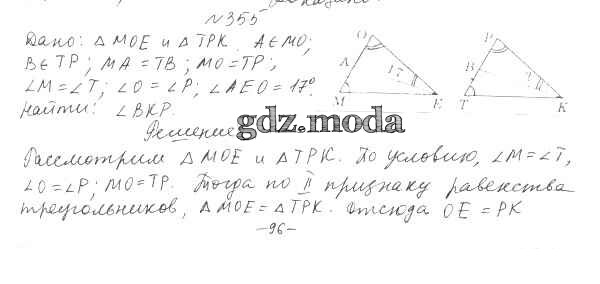 №355
Дано: △ MOE и △ TPK. A∈MO;
B∈TP; MA=TB; MO=TP;
∠M=∠T; ∠O=∠P; ∠AEO=17°.
Найти: ∠BKP.
Решение
gdz.moda
Рассмотрим △ MOE и △ TPK. По условию, ∠M=∠T,
∠O=∠P; MO=TP. Тогда по II признаку равенства
треугольников, △ MOE = △ TPK. Отсюда OE = PK
-96-
O
A
17
M
E
P
B
T
K